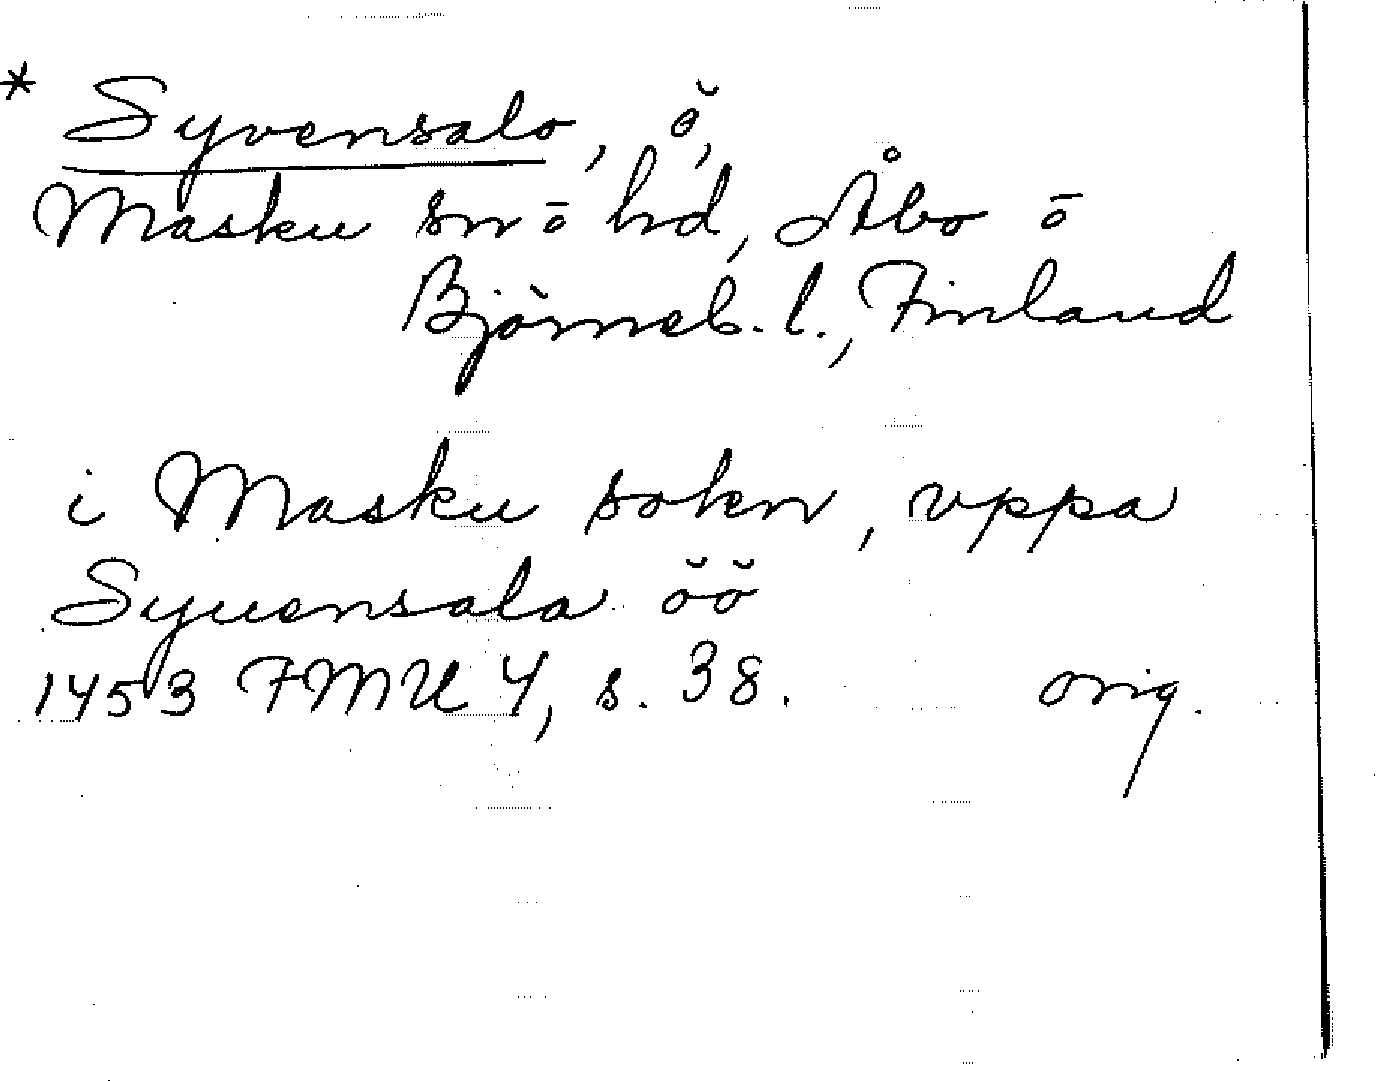 * Syvensalo, ö,
Masku sn o hd, Åbo o
Björneb. l., Finland
i Masku sokn, vppa
Syuensala öö
1453 FMU 4, s. 38. orig.